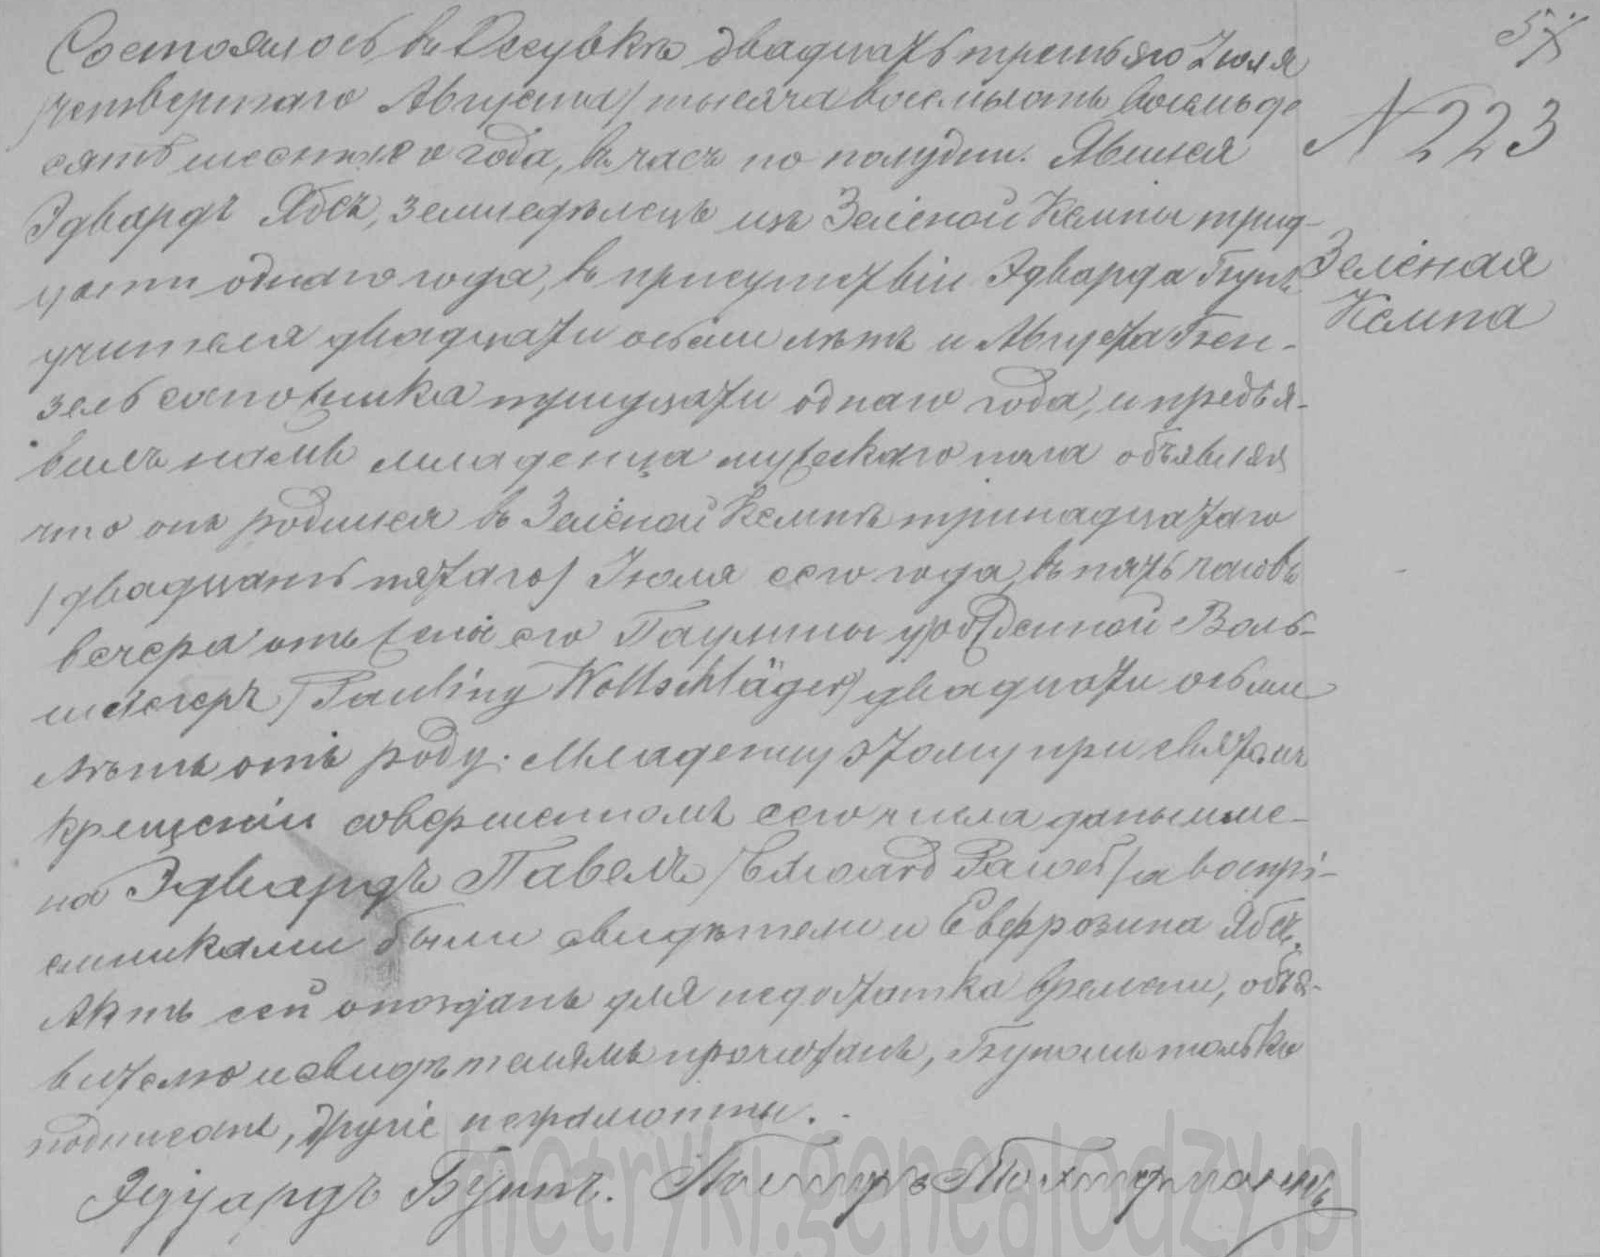 57
Состоялось въ Осувкѣ двадцать третьяго Іюля
/четвертаго Августа/ тысяча восемьсотъ восемьде
сятъ шестого года, въ часъ по полудни. Явился
Эдвардъ Ябсъ, земледѣлецъ изъ Зеліоной Кемпы трид-
цати одного года, въ присутствіи Эдварда Бунъ
учителя двадцати осьми лѣтъ и Августа Вен-
зель сотника тридцати одного года, и предъя-
вилъ намъ младенца мужескаго пола объявляя
что онъ родился въ Зеліоной Кемпѣ тринадцатаго
/двадцать пятаго/ Іюля сего года, въ пять часовъ
вечера отъ жены его Паулины урожденной Воль-
шлегеръ /Pauliny Wollschläger/ двадцати осьми
лѣтъ отъ роду. Младенцу этому при святомъ
крещеніи совершенномъ сего числа даны име-
на Эдвардъ Павелъ /Edward Paweł/ а воспрі-
емниками были свидѣтели и Ефрозина Ябсъ.
Актъ сей опозданъ для недостатка времени, объя-
вителю и свидѣтелямъ прочитанъ, Буномъ только
подписанъ, другіе неграмотны.
Эдуардъ Бунъ. Пасторъ
N 223
Зеліоная
Кемпа
metryki.genealodzy.pl